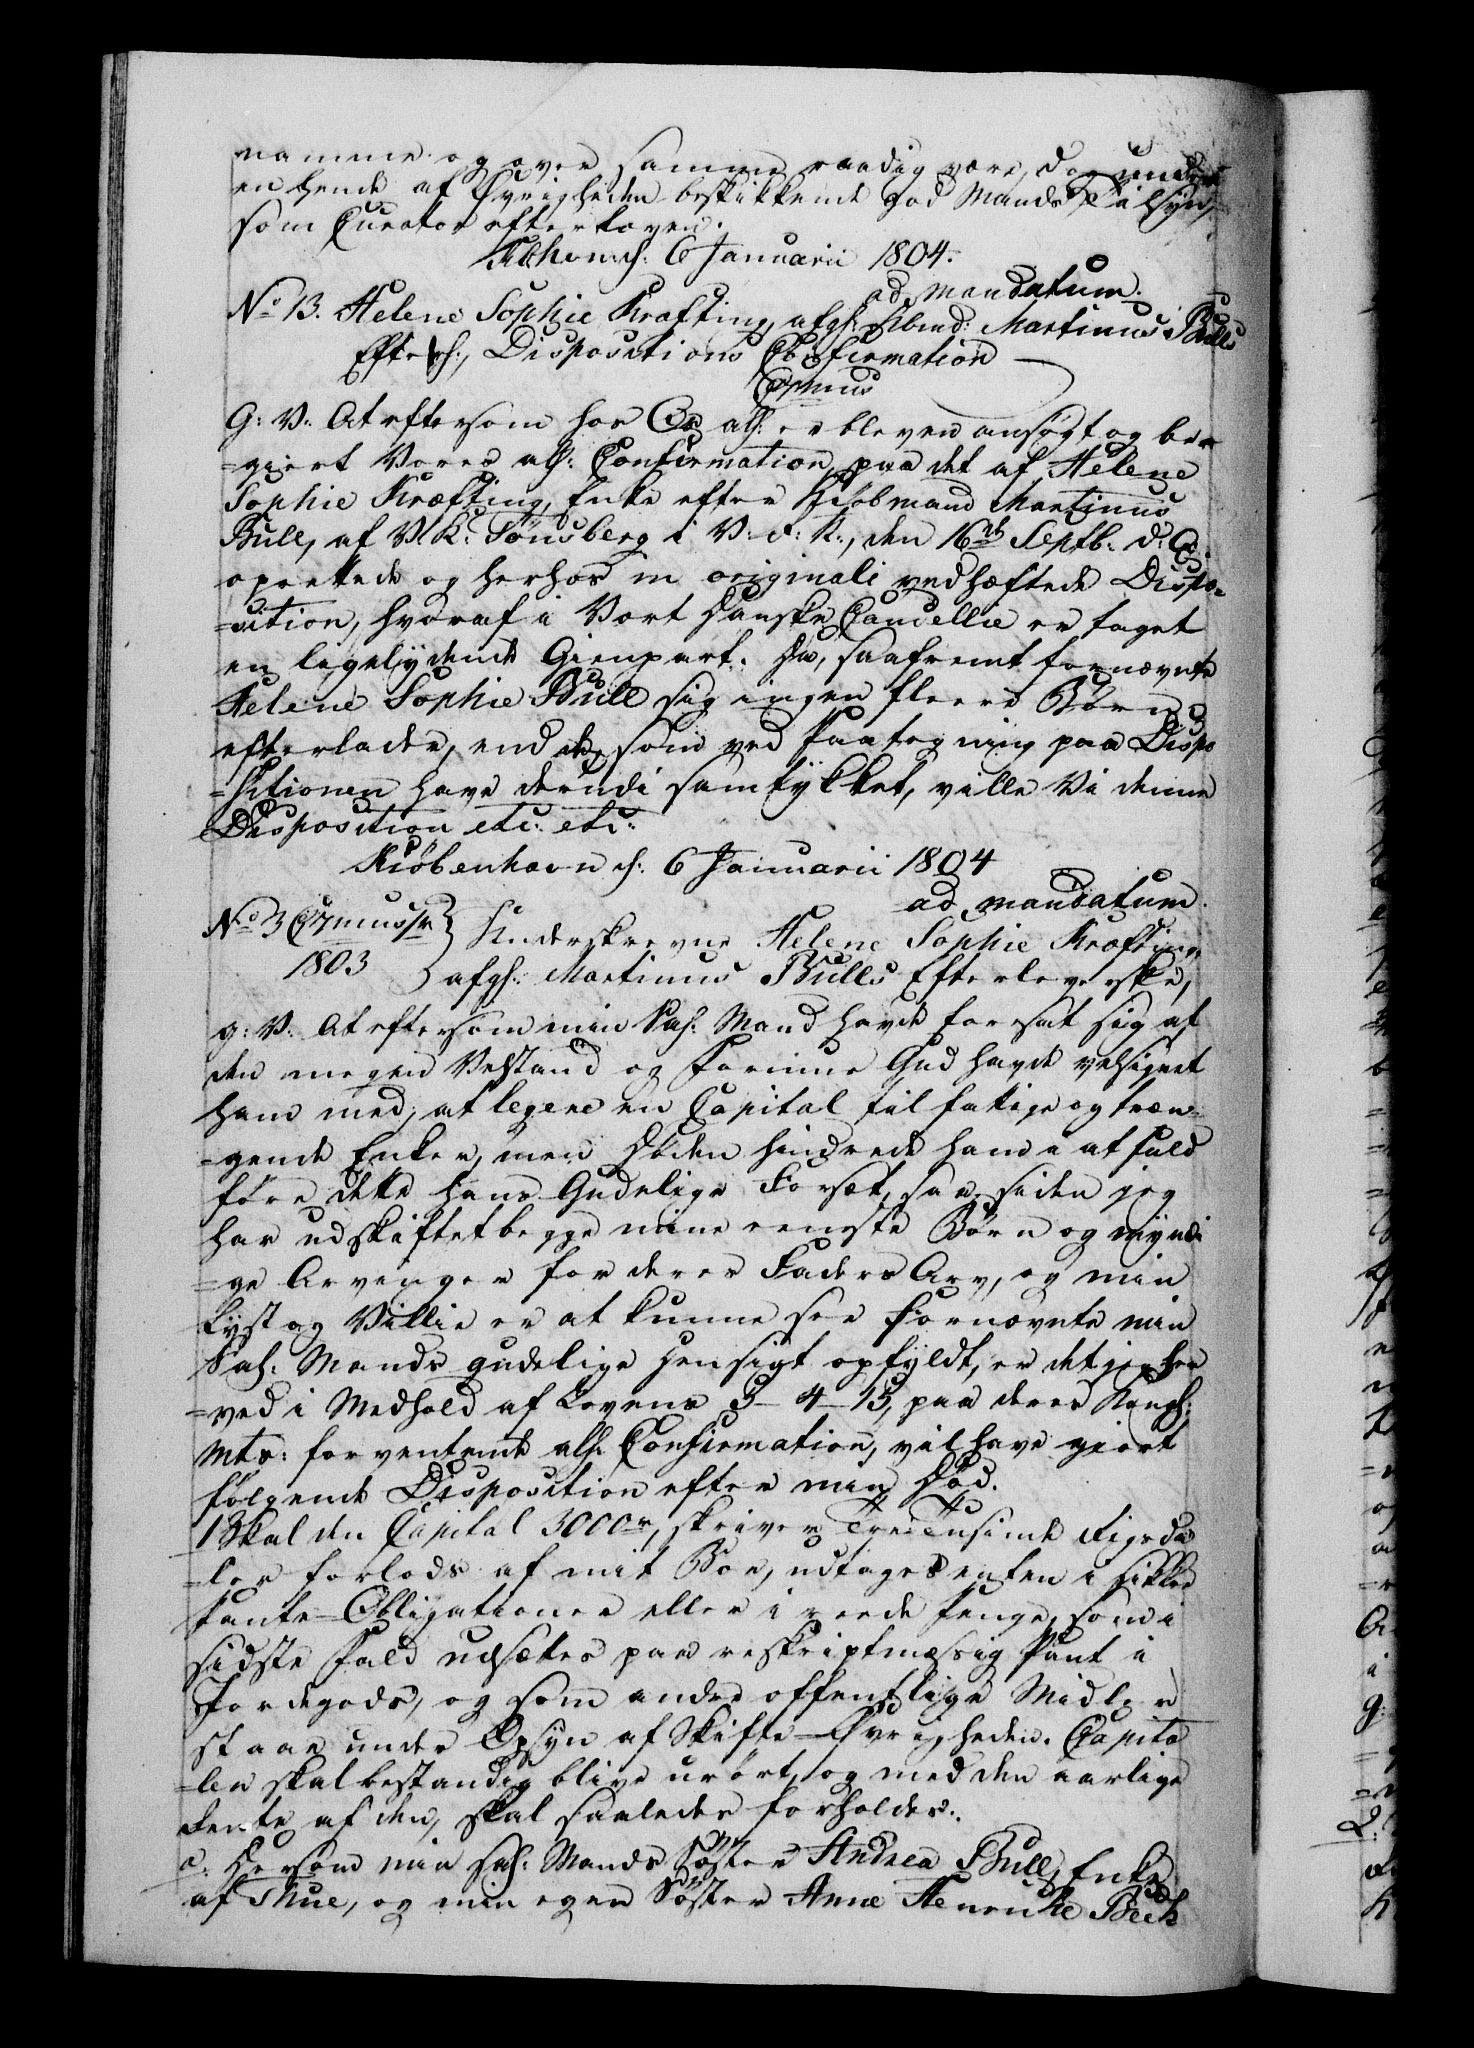 namme og over samme raadig være, dog under
en hende af Øvrigheden beskikkende god Mands Tilsyn,
som Curator efter loven.
Kbhvn d: 6 Januarii 1804.
ad mandatum.
No 13. Helene Sophie Kræfting, afg: Kbmd: Martinus Bulls
Efterl:, Dispositions Confirmation
G: V: At eftersom hos Os all: er bleven ansøgt og be-
=giert Vores all: Confirmation, paa det af Helene
Sophie Kræfting, Enke efter Kiøbmand Martinus
Bull, af V. K: Tønsberg i V: R: N:, den 16de Septb: d: A:
oprettede og herhos in originali vedhæftede Dispo-
=sition, hvoraf i Vort Danske Cancellie er taget
en ligelydende Gienpart. Da, saafremt fornævnte
Helene Sophie Bull sig ingen fleere Børn
efterlader, end de, som ved Paategning paa Dispo
=sitionen have derudi samtykket, ville Vi denne
Disposition etc: etc:
Kiøbenhavn d: 6 Januarii 1804
ad mandatum.
No 3
1803
Underskrevne Helene Sophie Kræfting,
afg: Martinus Bulls Efterleverske,
g: V: At eftersom min Sal: Mand havde forsat sig af
den megen Velstand og Formue Gud havde velsignet
ham med, at legere en Capital til fattige og træn-
=gende Enker, men Døden hindrede ham i at fuld
føre dette hans Gudelige Forsæt, saa siden jeg
har udskiftet begge mine eeneste Børn og myndi
=ge Arvinger for deres Faders Arv, og min
Lyst og Villie er at kunne see fornævnte min
Sal: Mands gudelige Hensigt opfyldt, er det jeg her
=ved i Medhold af Lovens 5-4-15, paa deres Kongl:
Mts: forventende all: Confirmation, vil have giort
følgende Disposition efter min Død.
1 Skal den Capital 3000rd, skriver Tre Tusinde Rigsda
=ler forlods af mit Boe, udtages enten i sikkre
Pante-Obligationer eller i reede Penge, som i
sidste Fald udsættes paa reskriptmæssig Pant i
Jordegods, og som andre offentlige Midler
staae under Opsyn af Skifte-Øvrigheden. Capita
=len skal bestandig blive urørt, og med den aarlige
Rente af den, skal saaledes forholdes:
a. Dersom min sal: Mands Søster Andrea Bull, Enke
af Mue, og min egen Søster Anne Henricke Bech